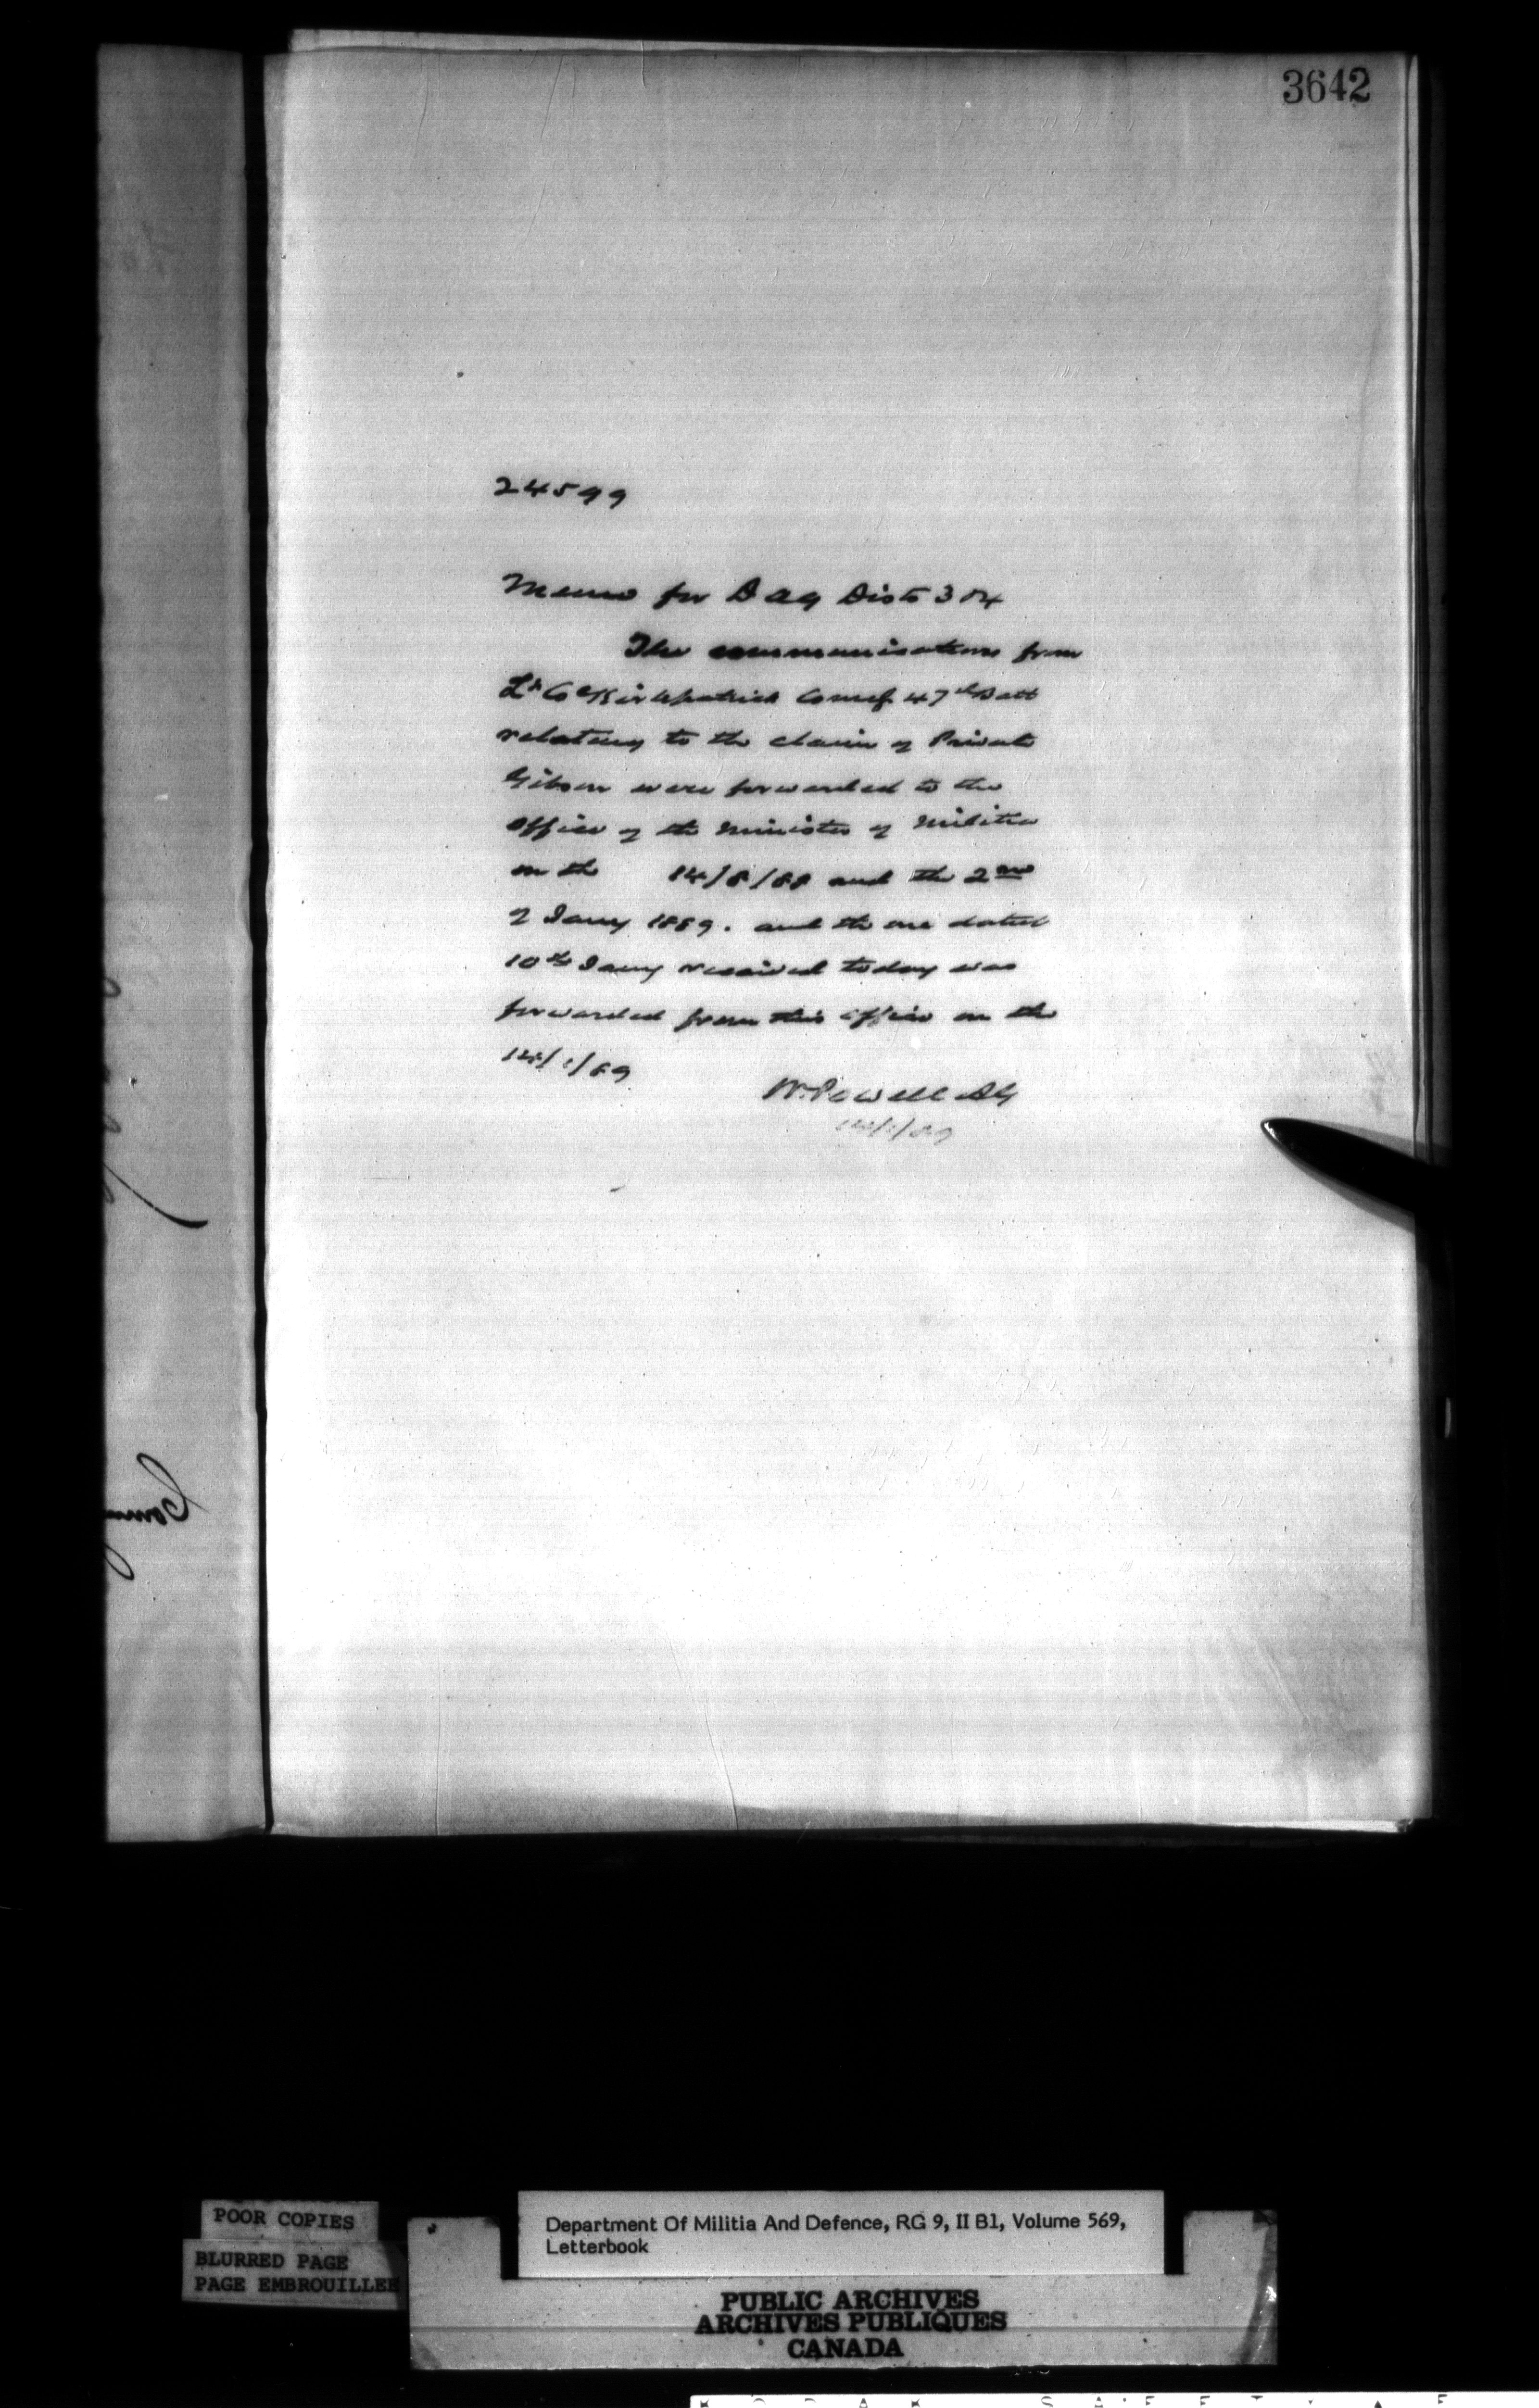 3642
24599
Memo for DAG Dists 3 & 4
The communications from
Lt Col Kirkpatrick Comg 47th Batt
relating to the claim of Private
Gibson were forwarded to the
office of the Minister of Militia
on the 14/8/88 and the 2nd
of Jany 1889. and the one dated
10th Jany received today was
forwarded from this office on the
14/1/89
W. Powell AG
14/1/89
POOR COPIES
BLURRED PAGE
PAGE EMBROUILLEE
Department Of Militia And Defence, RG 9, II B1, Volume 569,
Letterbook
PUBLIC ARCHIVES
ARCHIVES PUBLIQUES
CANADA